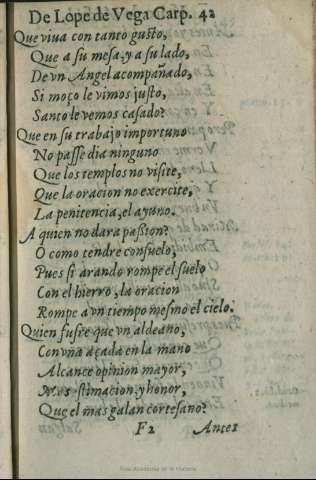 De Lope de Vega Carp. 42
Que viua con tanto gusto,
Que a su mesa, y a su lado,
De vn Angel acompañado,
Si moço le vimos justo,
Santo le vemos casado?
Que en su trabajo importuno
No passe dia ninguno
Que los templos no visite,
Que la oracion no exercite,
La penitencia, el ayuno.
A quien no dara passion?
O como tendre consuelo,
Pues si arando rompe el suelo
Con el hierro, la oracion
Rompe a vn tiempo mesmo el cielo.
Quien sufre que vn aldeano,
Con vna açada en la mano
Alcance opinion mayor,
Mas estimacion, y honor,
Que el mas galan cortesano?
F2 Antes
Real Academia de la Historia